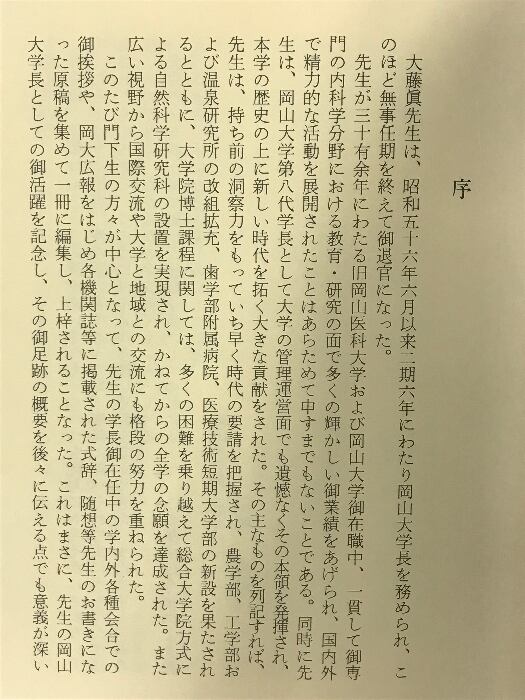 序
大藤眞先生は、昭和五十六年六月以来二期六年にわたり岡山大学長を務められ、こ
のほど無事任期を終えて御退官になった。
先生が三十有余年にわたる旧岡山医科大学および岡山大学御在職中、一貫して御専
門の内科学分野における教育・研究の面で多くの輝かしい御業績をあげられ、国内外
で精力的な活動を展開されたことはあらためて申すまでもないことである。同時に先
生は、岡山大学第八代学長として大学の管理運営面でも遺憾なくその本領を発揮され、
本学の歴史の上に新しい時代を拓く大きな貢献をされた。その主なものを列記すれば、
先生は、持ち前の洞察力をもっていち早く時代の要請を把握され、農学部、工学部お
よび温泉研究所の改組拡充、歯学部附属病院、医療技術短期大学部の新設を果たされ
るとともに、大学院博士課程に関しては、多くの困難を乗り越えて総合大学院方式に
よる自然科学研究科の設置を実現され、かねてからの全学の念願を達成された。また
広い視野から国際交流や大学と地域との交流にも格段の努力を重ねられた。
このたび門下生の方々が中心となって、先生の学長御在任中の学内外各種会合での
御挨拶や、岡大広報をはじめ各機関誌等に掲載された式辞、随想等先生のお書きにな
った原稿を集めて一冊に編集し、上梓されることなった。これはまさに、先生の岡山
大学長としての御活躍を記念し、その御足跡の概要を後々に伝える点でも意義が深い